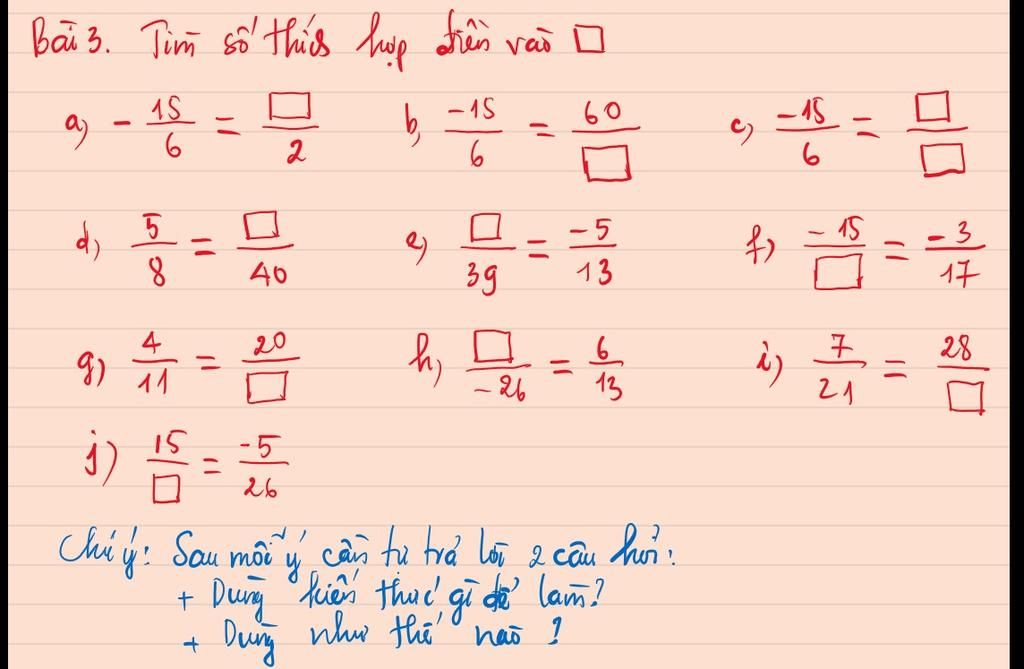 Bài 3. Tìm số thích hợp điền vào □
a, - 15/6 = □/2 b, -15/6 = 60/□ c, -15/6 = □/□
d, 5/8 = □/40 e, □/39 = -5/13 f) -15/□ = -3/17
g) 4/11 = 20/□ h, □/-26 = 6/13 i) 7/21 = 28/□
j) 15/□ = -5/26
Chú ý: Sau mỗi ý cần tự trả lời 2 câu hỏi:
+ Dùng kiến thức gì để làm?
+ Dùng như thế nào ?